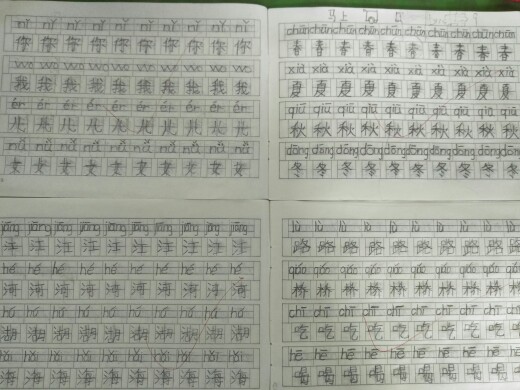 nǐ nǐ nǐ nǐ nǐ nǐ nǐ nǐ nǐ
你 你 你 你 你 你 你 你 你
wǒ wǒ wǒ wǒ wǒ wǒ wǒ wǒ wǒ
我 我 我 我 我 我 我 我 我
ér ér ér ér ér ér ér ér ér
儿 儿 儿 儿 儿 儿 儿 儿 儿
nǚ nǚ nǚ nǚ nǚ nǚ nǚ nǚ nǚ
女 女 女 女 女 女 女 女 女
马上
chūn chūn chūn chūn chūn chūn chūn chūn chūn
春 春 春 春 春 春 春 春 春
xià xià xià xià xià xià xià xià xià
夏 夏 夏 夏 夏 夏 夏 夏 夏
qiū qiū qiū qiū qiū qiū qiū qiū qiū
秋 秋 秋 秋 秋 秋 秋 秋 秋
dōng dōng dōng dōng dōng dōng dōng dōng dōng
冬 冬 冬 冬 冬 冬 冬 冬 冬
jiāng jiāng jiāng jiāng jiāng jiāng jiāng jiāng jiāng
江 江 江 江 江 江 江 江 江
hé hé hé hé hé hé hé hé hé
河 河 河 河 河 河 河 河 河
hú hú hú hú hú hú hú hú hú
湖 湖 湖 湖 湖 湖 湖 湖 湖
hǎi hǎi hǎi hǎi hǎi hǎi hǎi hǎi hǎi
海 海 海 海 海 海 海 海 海
lù lù lù lù lù lù lù lù lù
路 路 路 路 路 路 路 路 路
qiáo qiáo qiáo qiáo qiáo qiáo qiáo qiáo qiáo
桥 桥 桥 桥 桥 桥 桥 桥 桥
chī chī chī chī chī chī chī chī chī
吃 吃 吃 吃 吃 吃 吃 吃 吃
hē hē hē hē hē hē hē hē hē
喝 喝 喝 喝 喝 喝 喝 喝 喝